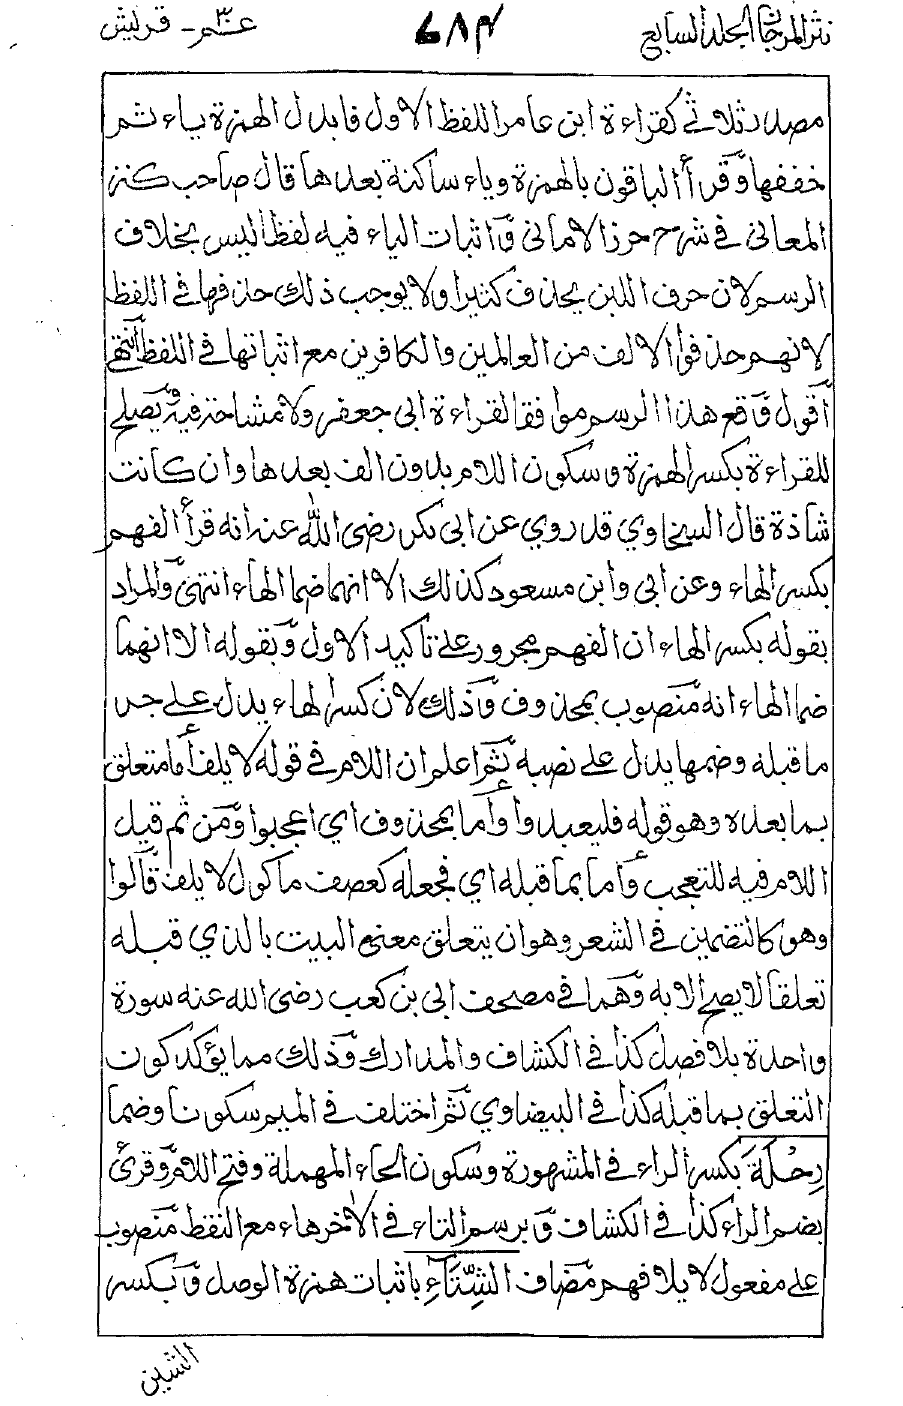 نثر المرجان المجلد السابع ۷۸۴ عمّ۳۰ - قريش
مصدر ثلاثي كقراءة ابن عامر اللفظ الاول فابدل الهمزة ياء ثم
خففها وقرأ الباقون بالهمزة وياء ساكنة بعدها قال صاحب كنز
المعاني في شرح حرز الاماني واثبات الياء فيه لفظا ليس بخلاف
الرسم لان حرف اللين يحذف كثيرا ولا يوجب ذلك حذفها في اللفظ
لانهم حذفوا الالف من العالمين والكافرين مع اثباتها في اللفظ انتهى
اقول وقع هذا الرسم موافقا لقراءة ابى جعفر ولا مشاحة فيه ويصلح
للقراءة بكسر الهمزة وسكون اللام بدون الف بعدها وان كانت
شاذة قال السخاوي قد روي عن ابى بكر رضى الله عنه انه قرأ الفهم
بكسر الهاء وعن ابى وابن مسعود كذلك الا انهما ضما الهاء انتهى والمراد
بقوله بكسر الهاء ان الفهم مجرور على تأكيد الاول وبقوله الا انهما
ضما الهاء انه منصوب بمحذوف وذلك لان كسر الهاء يدل على جر
ما قبله وضمها يدل على نصبه ثم اعلم ان اللام في قوله لايلف اما متعلق
بما بعده وهو قوله فليعبدوا واما بمحذوف اي اعجبوا ومن ثم قيل
اللام فيه للتعجب واما بما قبله اي فجعله كعصف ماكول لايلف قالوا
وهو كالتضمين في الشعر وهو ان يتعلق معنى البيت بالذي قبله
تعلقا لا يصح الا به وهما في مصحف ابى بن كعب رضى الله عنه سورة
واحدة بلا فصل كذا في الكشاف والمدارك وذلك مما يؤكد كون
التعلق بما قبله كذا في البيضاوي ثم اختلف في الميم سكونا وضما
رِحْلَةَ بكسر الراء في المشهورة وسكون الحاء المهملة وفتح اللام وقرئ
بضم الراء كذا في الكشاف وبرسم التاء في الاخر هاء مع النقط منصوب
على مفعول لايلافهم مضاف الشِّتَآءِ باثبات همزة الوصل وبكسر
الشين